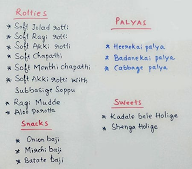 Rotties
* Soft Jolad rotti
* Soft Ragi rotti
* Soft Akki rotti
* Soft Chapathi
* Soft Menthi chapathi
* Soft Akki rotti with
Subbasige Soppu
* Ragi Mudde
* Aloo Parotta
Snacks
* Onion baji
* Mirchi baji
* Batate baji
PALYAS
* Heerekai palya
* Badanekai palya
* Cabbage palya
Sweets
* Kadale bele Holige
* Shenga Holige